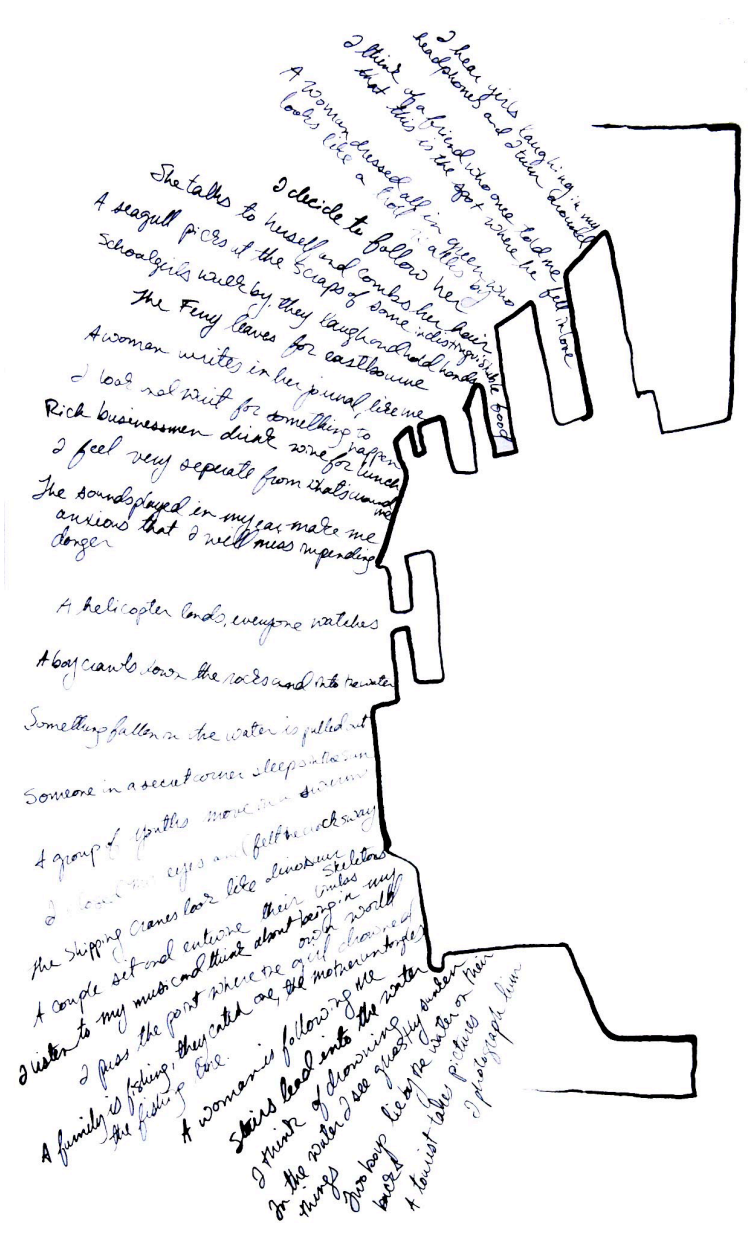 I hear girls laughing in my
headphones and I turn around
I think of a friend who once told me
that this is the spot where he fell in love
A woman dressed all in green who
looks like a troll walks by
I decide to follow her
She talks to herself and combs her hair
A seagull picks at the scraps of some indistinguishable food
Schoolgirls walk by, they laugh and hold hands
The Ferry leaves for eastbourne
A woman writes in her journal, like me
I look and wait for something to
happen
Rich businessmen drink wine for lunch
I feel very seperate from whats around
me
The sounds played in my ear make me
anxious that I will miss inpending
danger
A helicopter lands, everyone watches
A boy crawls down the rocks and into the water
Something fallen in the water is pulled out
Someone in a secret corner sleeps in the sun
A group of youths move in a swarm
I closed my eyes and felt the rock sway
The Shipping cranes look like dinosaur
Skeletons
A couple sit and entwine their limbs
I listen to my music and think about being in my
own world
I pass the point where the girl drowned
A family is fishing, they catch one, the mother untangles
the fishing line.
A woman is following me
Stairs lead into the water
I think of drowning
In the water I see ghastly sunken
things
Two boys lie by the water on their
backs
A tourist takes pictures
I photograph him